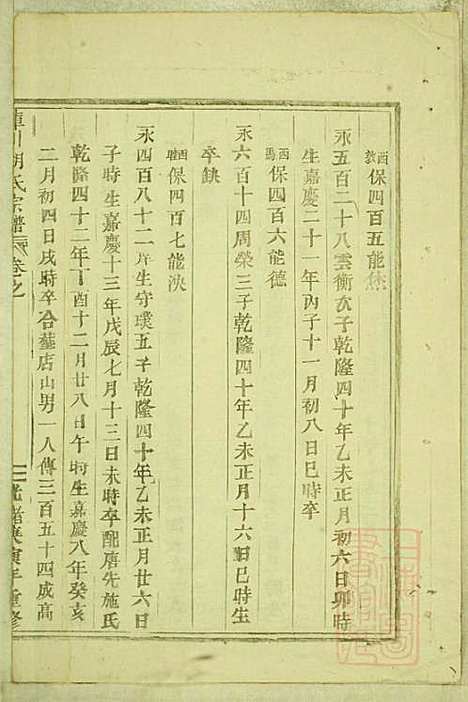 酉敦保四百五能烋
永五百二十八雲衡次子乾隆四十年乙未正月初六日卯時
生嘉慶二十一年丙子十一月初八日巳時卒
酉馬保四百六能德
永六百十四周榮三子乾隆四十年乙未正月十六日巳時生
卒缺
酉保四百七能泱
永四百八十二庠生守璞五子乾隆四十年乙未正月廿六日
子時生嘉慶十三年戊辰七月十三日未時卒配唐先施氏
乾隆四十二年丁酉十二月廿八日午時生嘉慶八年癸亥
二月初四日戌時卒合塟店山男一人傳三百五十四成高
川胡氏宗譜 卷之 光緒庚寅年重修